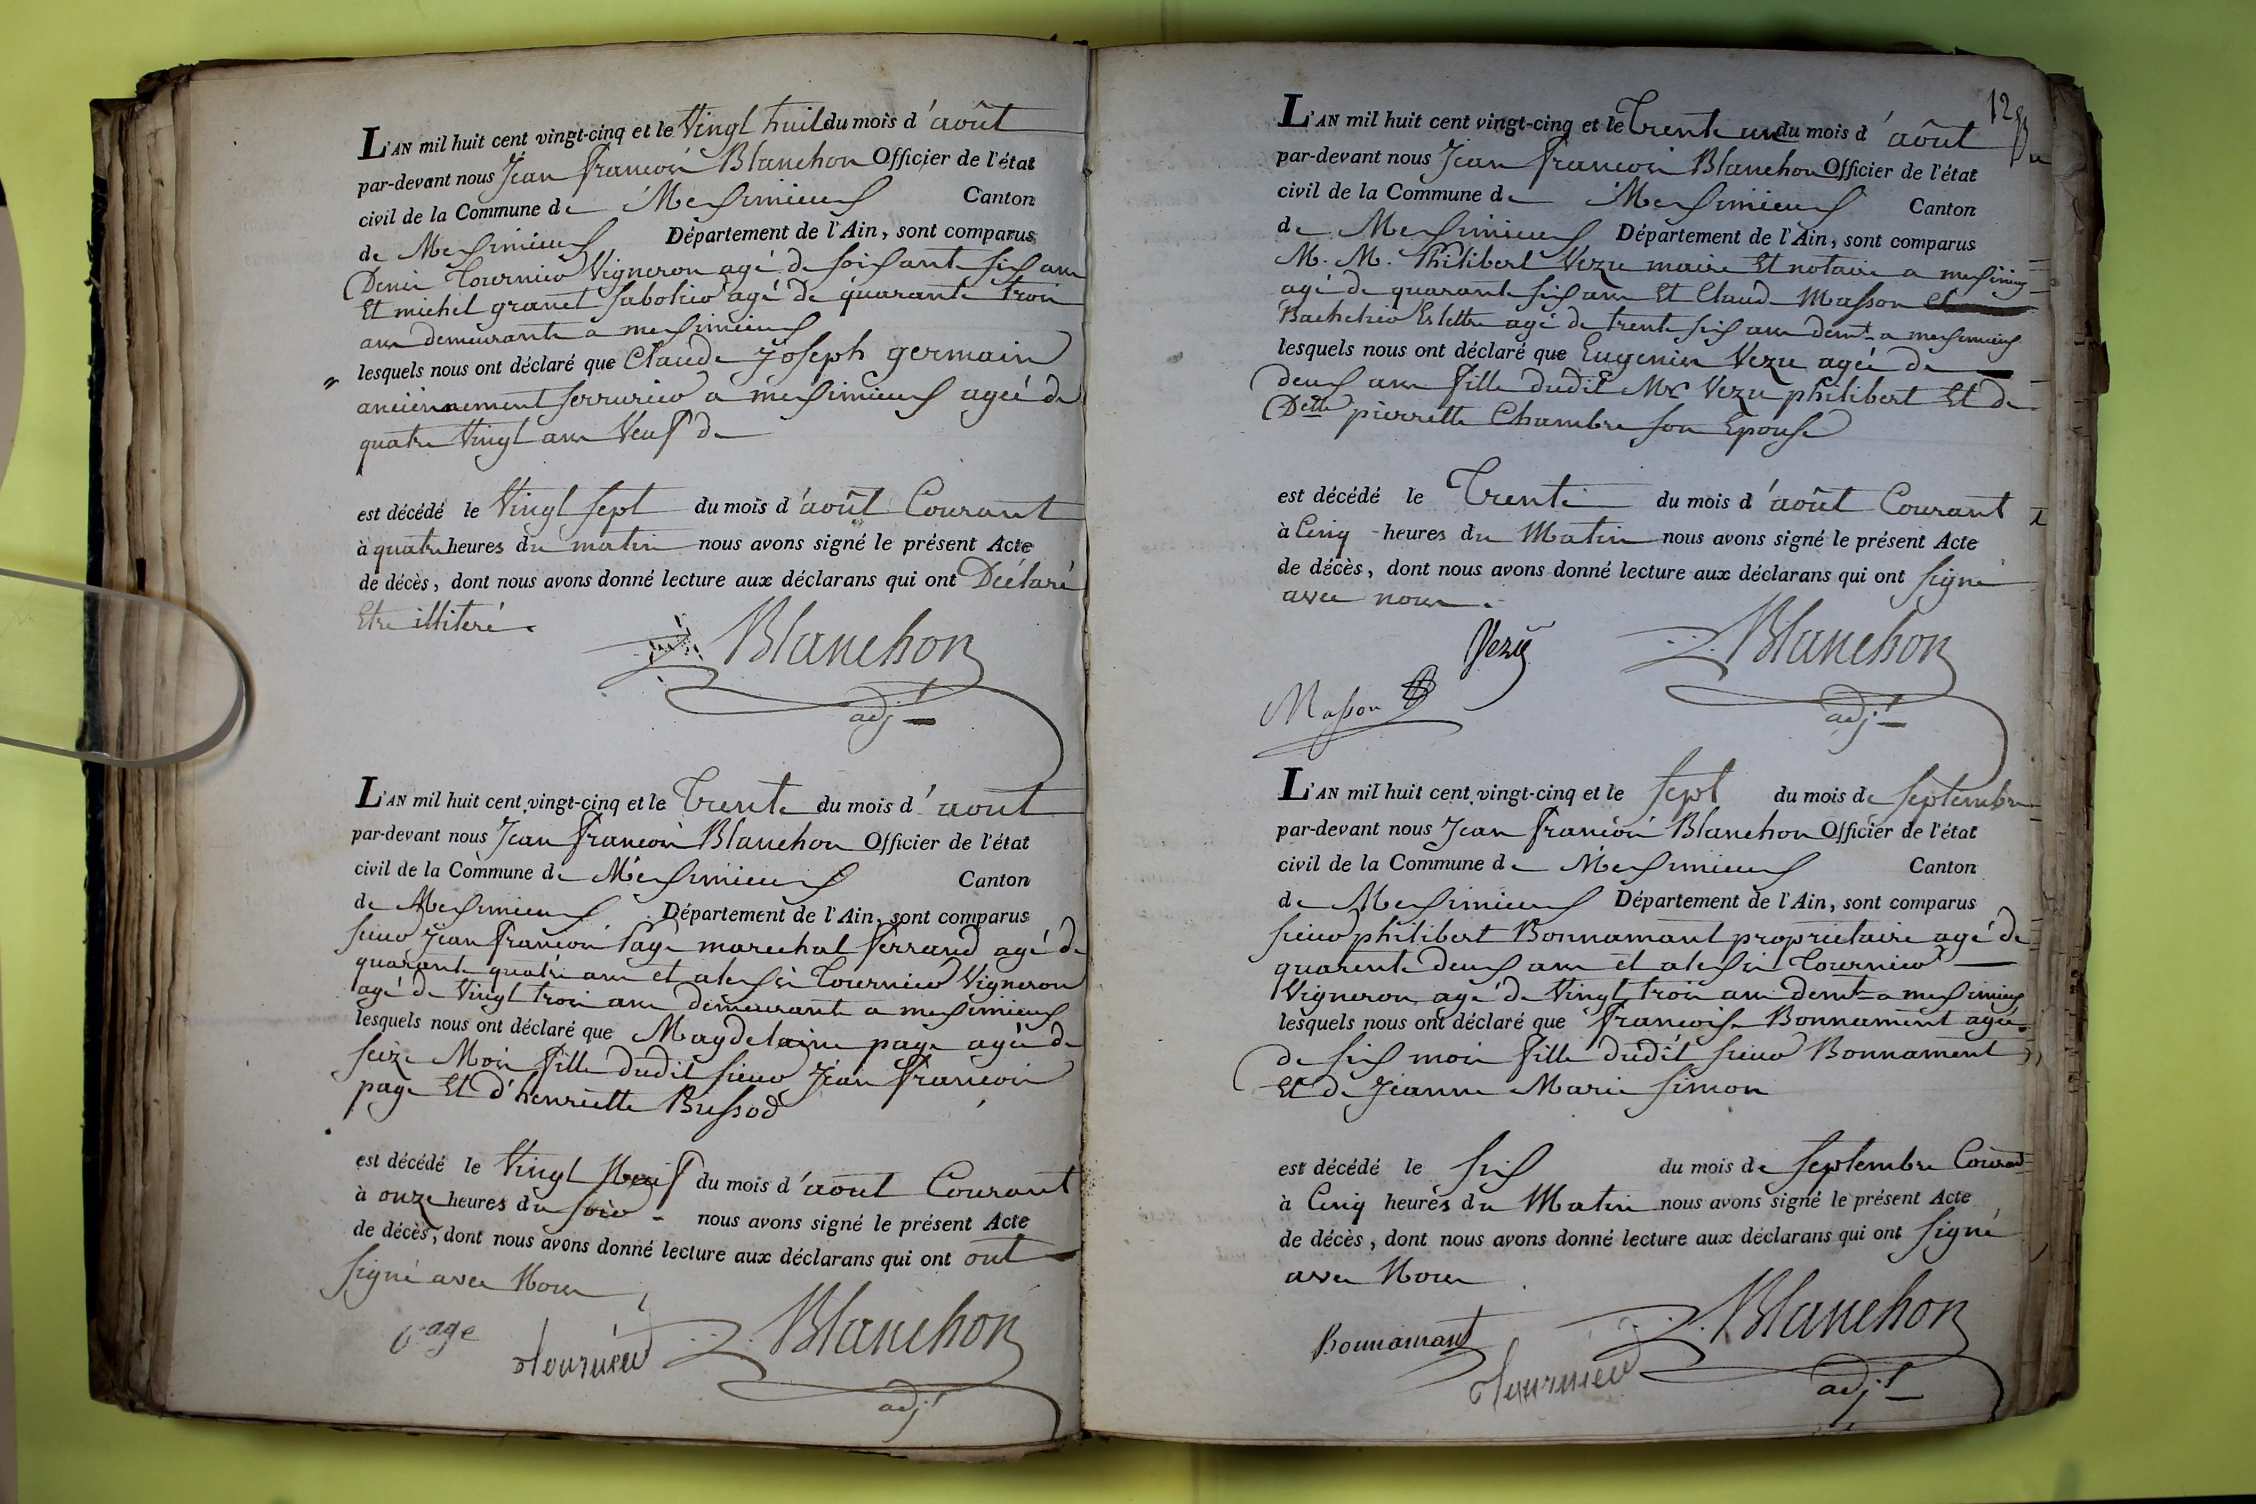 L'AN mil huit cent vingt-cinq et le Vingt huit du mois d'août
par-devant nous Jean françois Blanchon Officier de l'état
civil de la Commune de Meximieux Canton
de Meximieux Département de l'Ain, sont comparus
Denis Tournier Vigneron agé de soixante six ans
Et michel granet sabotier agé de quarante trois
ans demeurants a meximieux
lesquels nous ont déclaré que Claude Joseph germain
anciennement serrurier a meximieux agéé de
quatre Vingt ans Veuf de
est décédé le Vingt sept du mois d'août Courant
à quatre heures du matin nous avons signé le présent Acte
de décès, dont nous avons donné lecture aux déclarans qui ont Déclaré
Etre illiteré.
Blanchon
adjt
L'AN mil huit cent vingt-cinq et le Trente du mois d'aout
par-devant nous Jean françois Blanchon Officier de l'état
civil de la Commune de Meximieux Canton
de Meximieux Département de l'Ain, sont comparus
sieur Jean françois Page marechal ferrand agé de
quarante quatre ans et alexis Tournier Vigneron
agé de Vingt trois ans demeurants a meximieux
lesquels nous ont déclaré que Magdelaine page agéé de
seize Mois fille dudit sieur Jean françois
page Et d'henriette Bussod
est décédé le Vingt Neuf du mois d'aout Courant
à onze heures du soir nous avons signé le présent Acte
de décès, dont nous avons donné lecture aux déclarans qui ont ont
signé avec Nous
Page Tournier Blanchon
adjt
12
L'AN mil huit cent vingt-cinq et le Trente un du mois d'août
par-devant nous Jean françois Blanchon Officier de l'état
civil de la Commune de Meximieux Canton
de Meximieux Département de l'Ain, sont comparus
M. M. Philibert Vezu maire Et notaire a meximieux
agé de quarante six ans Et Claude Masson
Bachelier Es lettre agé de trente six ans demt a meximieux
lesquels nous ont déclaré que Eugenie Vezu agéé de
deux ans fille dudit Mr Vezu philibert Et de
Delle pierrette Chambre son Epouse
est décédé le Trente du mois d'août Courant
à Cinq heures du Matin nous avons signé le présent Acte
de décès, dont nous avons donné lecture aux déclarans qui ont signé
avec nous.
Vezu Blanchon
Masson adjt
L'AN mil huit cent vingt-cinq et le sept du mois de septembre
par-devant nous Jean françois Blanchon Officier de l'état
civil de la Commune de Meximieux Canton
de Meximieux Département de l'Ain, sont comparus
sieur philibert Bonnamant proprietaire agé de
quarente deux ans et alexis Tournier
Vigneron agé de Vingt trois ans demt a meximieux
lesquels nous ont déclaré que françoise Bonnament agéé
de six mois fille dudit sieur Bonnament
Et de Jeanne Marie simon
est décédé le six du mois de septembre Courant
à Cinq heures du Matin nous avons signé le présent Acte
de décès, dont nous avons donné lecture aux déclarans qui ont signé
avec Nous
Bonnamant Tournier Blanchon
adjt